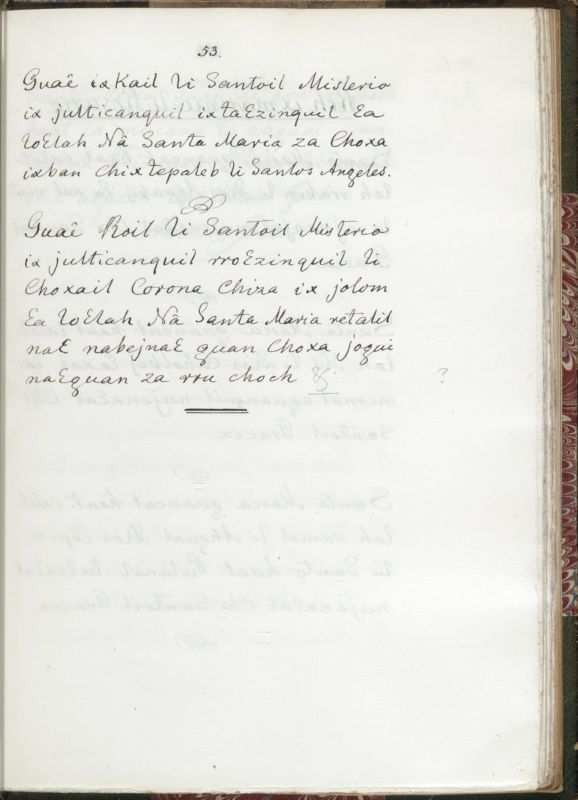 53.
Guaê ix Kail li Santoil Misterio
ix julticanquil ix taEzinquil Ea
loElah Nâ Santa Maria za Choxa
ixban chixtepaleb li Santos Angeles.
Guaê Roil li Santoil Misterio
ix jullicanquil rroEzinquil li
Choxail Corona Chiza ix jolom
Ea loElah Nâ Santa Maria retalil
naE nabejnaE quan Choxa joqui
naEquan za rru choch &
?